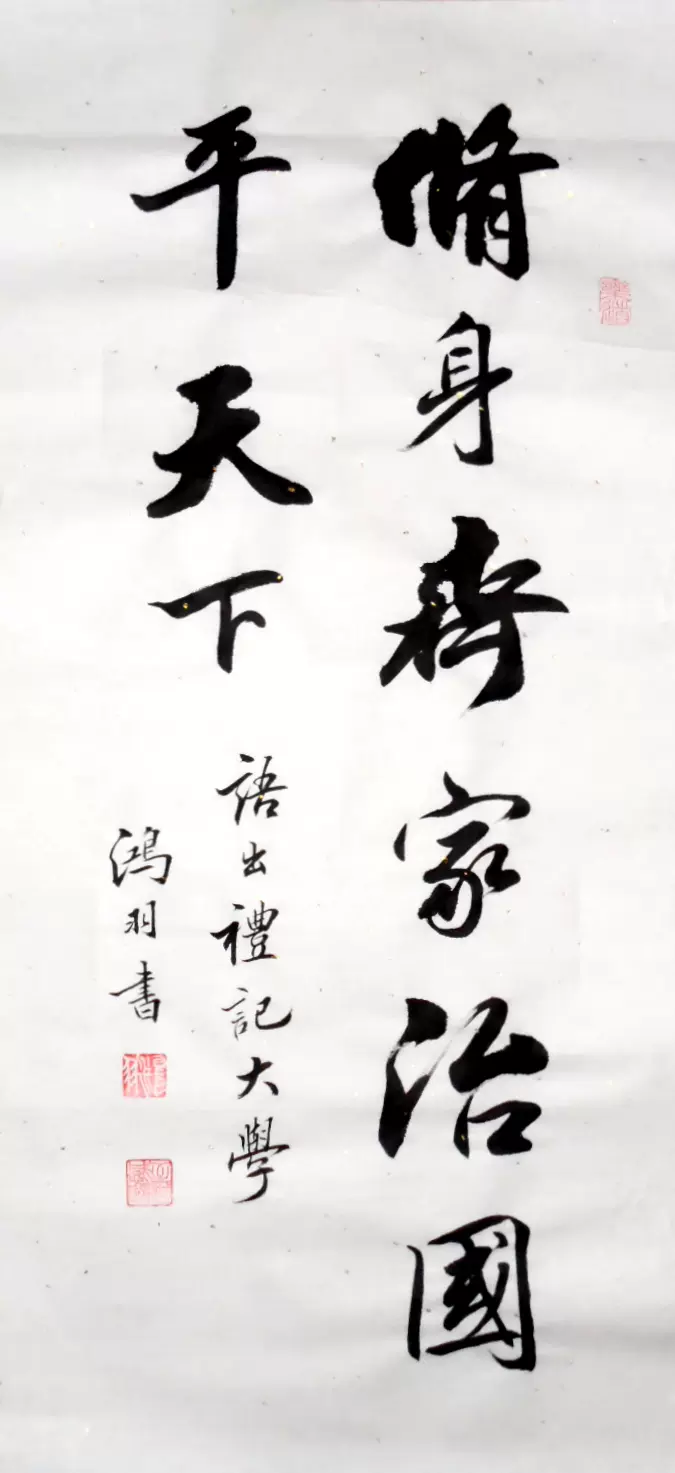 脩身齊家治國
平天下
語出禮記大學
鴻羽書